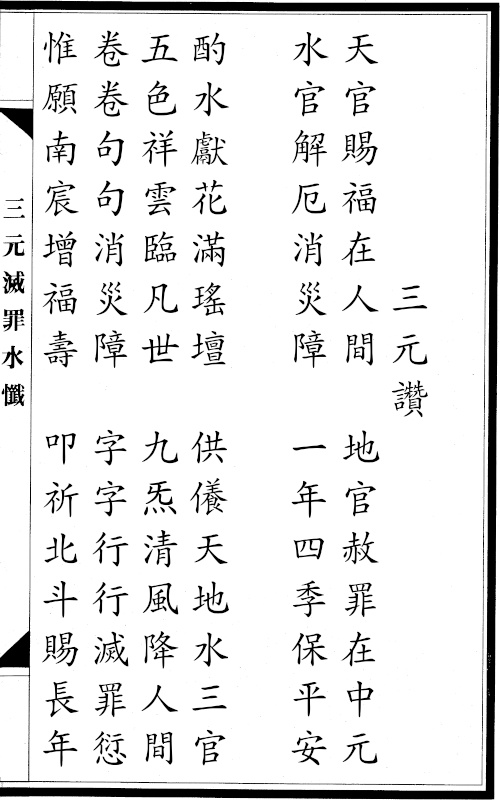 三元讚
天官賜福在人間　地官赦罪在中元
水官解厄消災障　一年四季保平安
酌水獻花滿瑤壇　供養天地水三官
五色祥雲臨凡世　九炁清風降人間
卷卷句句消災障　字字行行滅罪愆
惟願南宸增福壽　叩祈北斗賜長年
三元滅罪水懺